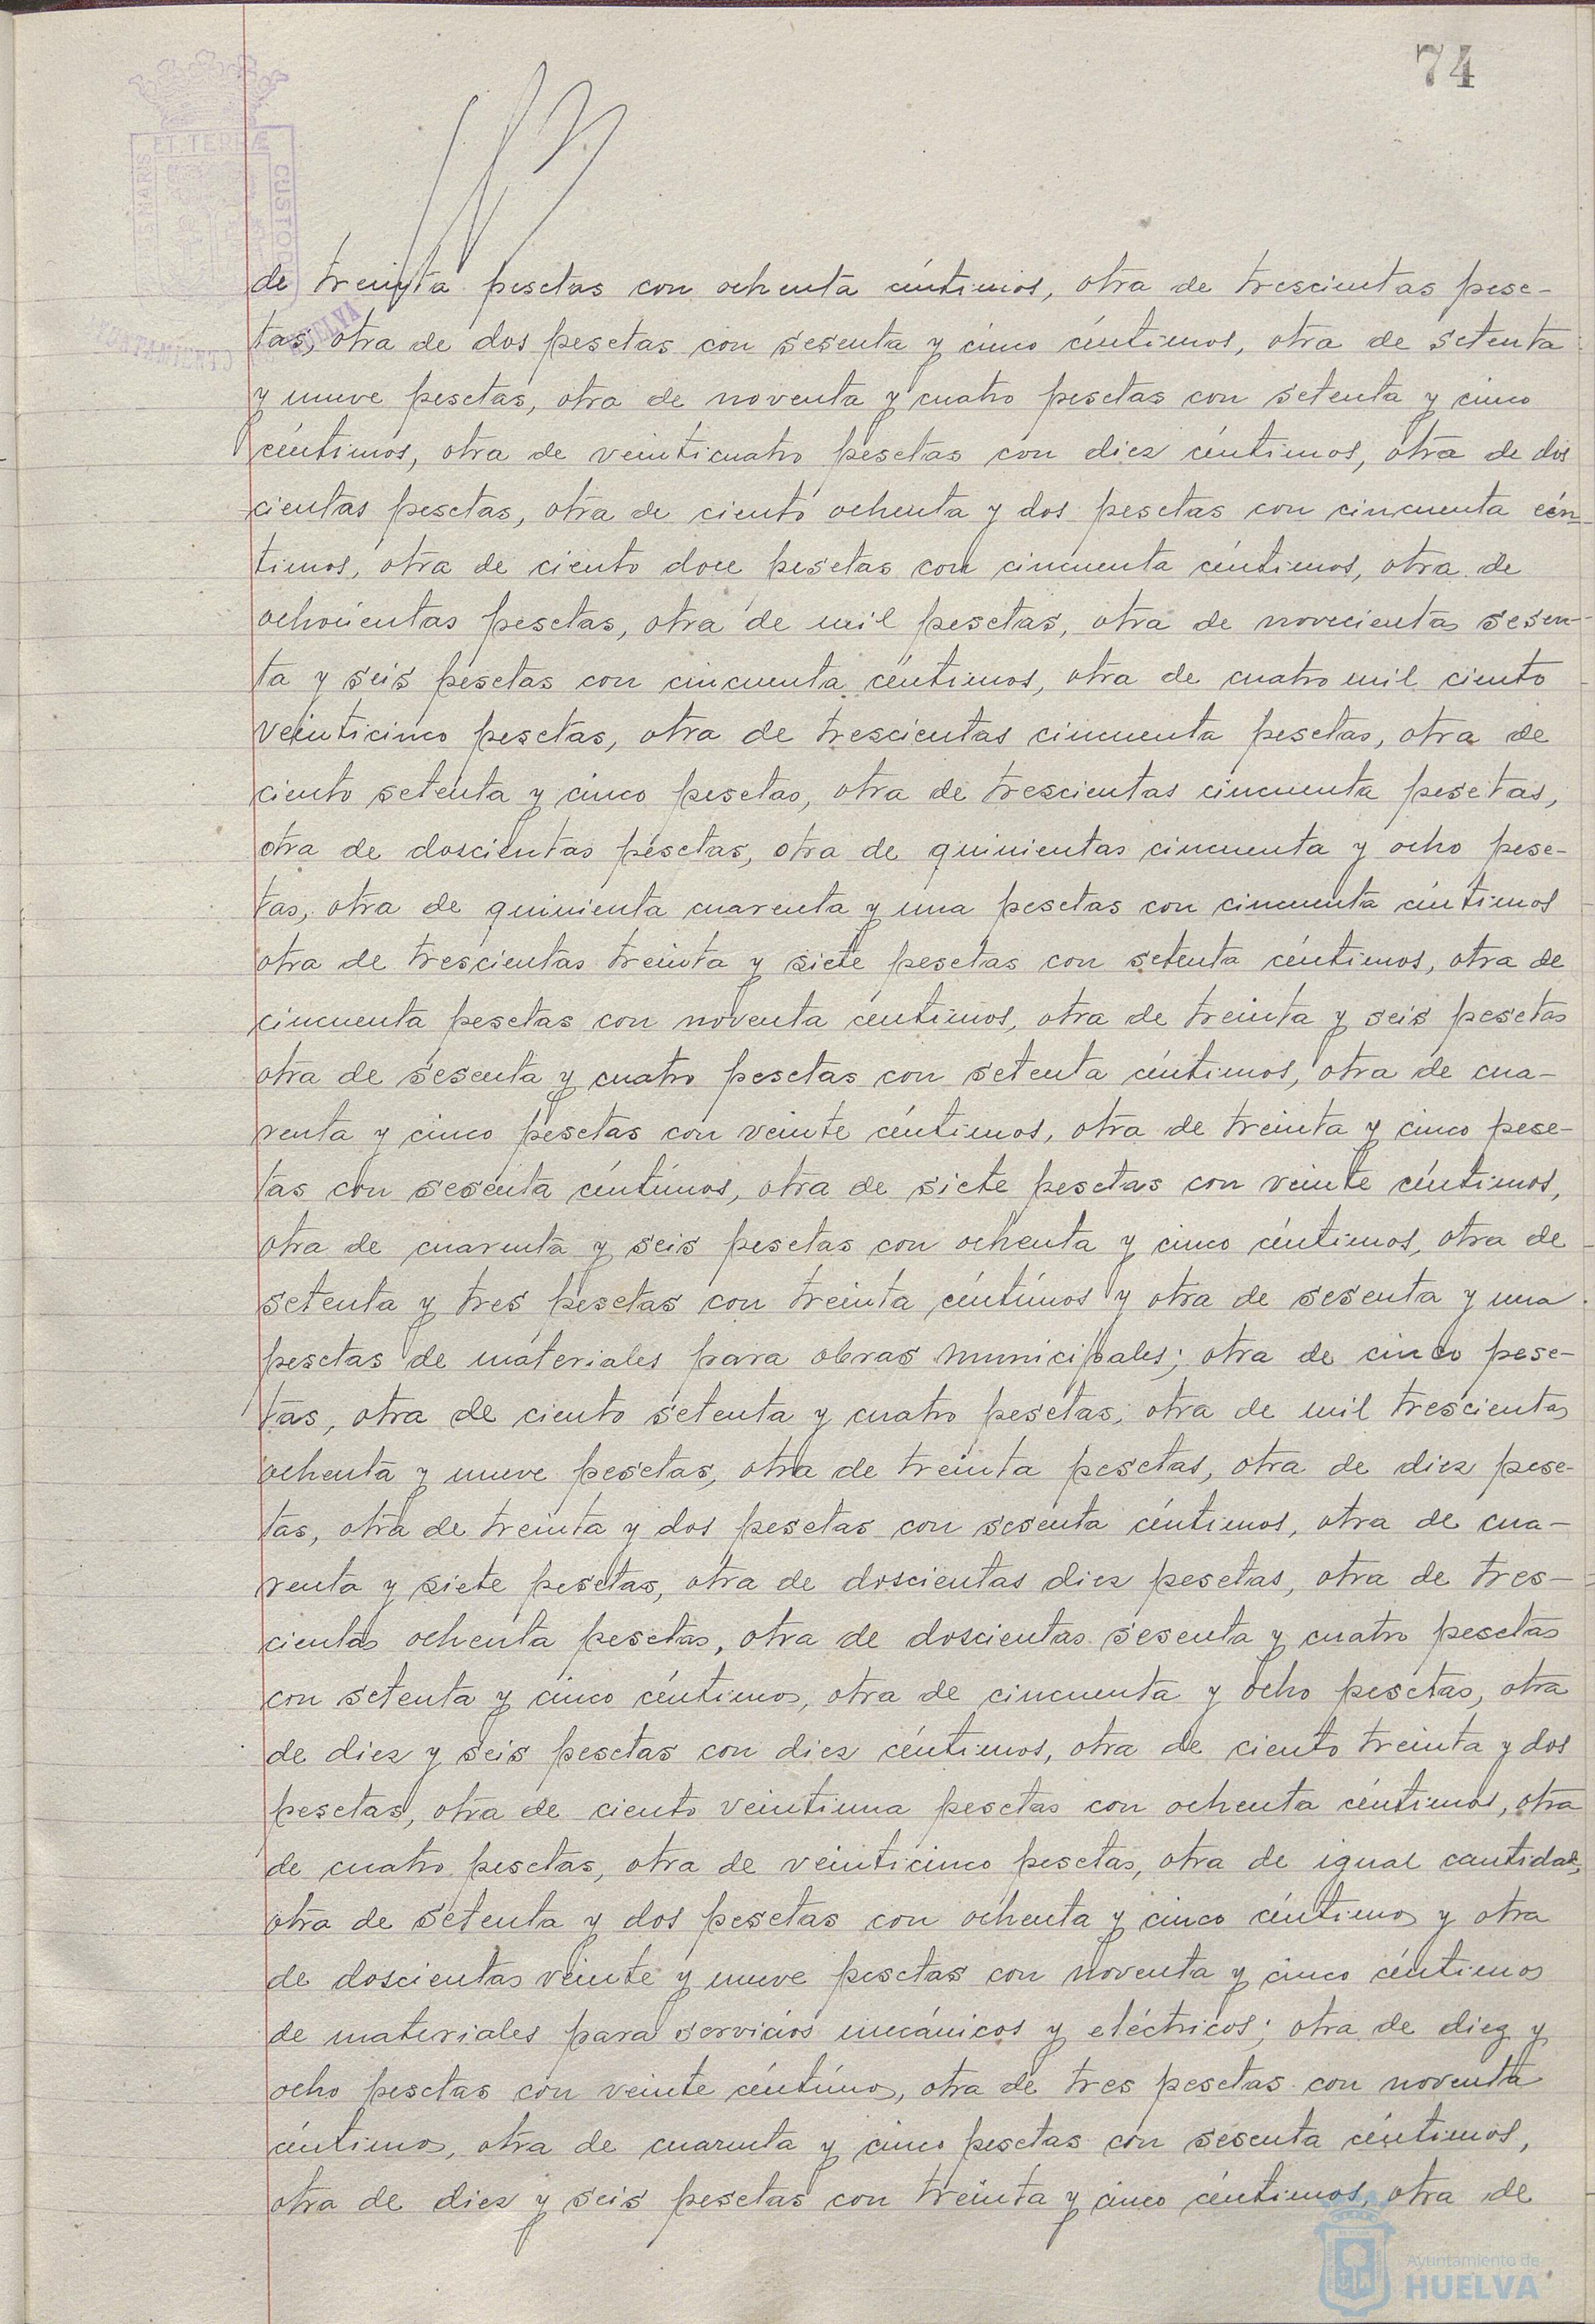 74
ET TERRÆ
S MARIS
CUSTOD
AYUNTAMIENTO
HUELVA
de treinta pesetas con ochenta céntimos, otra de trescientas pese-
tas, otra de dos pesetas con sesenta y cinco céntimos, otra de setenta
y nueve pesetas, otra de noventa y cuatro pesetas con setenta y cinco
céntimos, otra de veinticuatro pesetas con diez céntimos, otra de dos
cientas pesetas, otra de ciento ochenta y dos pesetas con cincuenta cén-
timos, otra de ciento doce pesetas con cincuenta céntimos, otra de
ochocientas pesetas, otra de mil pesetas, otra de novecientas sesen-
ta y seis pesetas con cincuenta céntimos, otra de cuatro mil ciento
veinticinco pesetas, otra de trescientas cincuenta pesetas, otra de
ciento setenta y cinco pesetas, otra de trescientas cincuenta pesetas,
otra de doscientas pesetas, otra de quinientas cincuenta y ocho pese-
tas, otra de quinienta cuarenta y una pesetas con cincuenta céntimos
otra de trescientas treinta y siete pesetas con setenta céntimos, otra de
cincuenta pesetas con noventa céntimos, otra de treinta y seis pesetas
otra de sesenta y cuatro pesetas con setenta céntimos, otra de cua-
renta y cinco pesetas con veinte céntimos, otra de treinta y cinco pese-
tas con sesenta céntimos, otra de siete pesetas con veinte céntimos,
otra de cuarenta y seis pesetas con ochenta y cinco céntimos, otra de
setenta y tres pesetas con treinta céntimos y otra de sesenta y una
pesetas de materiales para obras municipales; otra de cinco pese-
tas, otra de ciento setenta y cuatro pesetas, otra de mil trescientas
ochenta y nueve pesetas, otra de treinta pesetas, otra de diez pese-
tas, otra de treinta y dos pesetas con sesenta céntimos, otra de cua-
renta y siete pesetas, otra de doscientas diez pesetas, otra de tres-
cientas ochenta pesetas, otra de doscientas sesenta y cuatro pesetas
con setenta y cinco céntimos, otra de cincuenta y ocho pesetas, otra
de diez y seis pesetas con diez céntimos, otra de ciento treinta y dos
pesetas, otra de ciento veintiuna pesetas con ochenta céntimos, otra
de cuatro pesetas, otra de veinticinco pesetas, otra de igual cantidad,
otra de setenta y dos pesetas con ochenta y cinco céntimos y otra
de doscientas veinte y nueve pesetas con noventa y cinco céntimos
de materiales para servicios mecánicos y eléctricos; otra de diez y
ocho pesetas con veinte céntimos, otra de tres pesetas con noventa
céntimos, otra de cuarenta y cinco pesetas con sesenta céntimos,
otra de diez y seis pesetas con treinta y cinco céntimos, otra de
Ayuntamiento de
HUELVA